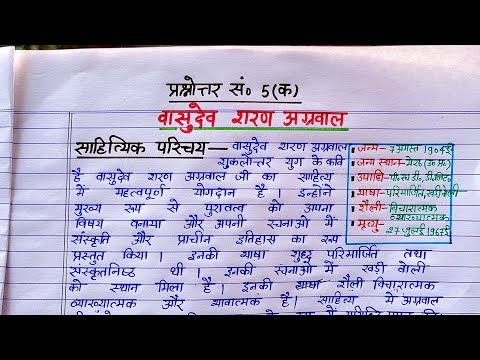 प्रश्नोत्तर सं० 5(क)
वासुदेव शरण अग्रवाल
साहित्यिक परिचय — वासुदेव शरण अग्रवाल
शुक्लोत्तर युग के कवि
है वासुदेव शरण अग्रवाल जी का साहित्य
में महत्वपूर्ण योगदान है। इन्होंने
मुख्य रूप से पुरातत्व को अपना
विषय बनाया और अपनी रचनाओं में
संस्कृति और प्राचीन इतिहास का रूप
प्रस्तुत किया। इनकी भाषा शुद्ध परिमार्जित तथा
संस्कृतनिष्ठ थी। इनकी रचनाओं में खड़ी बोली
को स्थान मिला है। इनकी भाषा शैली विचारात्मक
व्याख्यात्मक और भावात्मक है। साहित्य में अग्रवाल
जन्म - 7 अगस्त 1904 ई०
जन्म स्थान - मेरठ (उ० प्र०)
उपाधि - पी० एच डी०, डी० लिट०
भाषा - परिमार्जित, खड़ी बोली
शैली - विचारात्मक
व्याख्यात्मक
मृत्यु - 27 जुलाई 1967 ई०